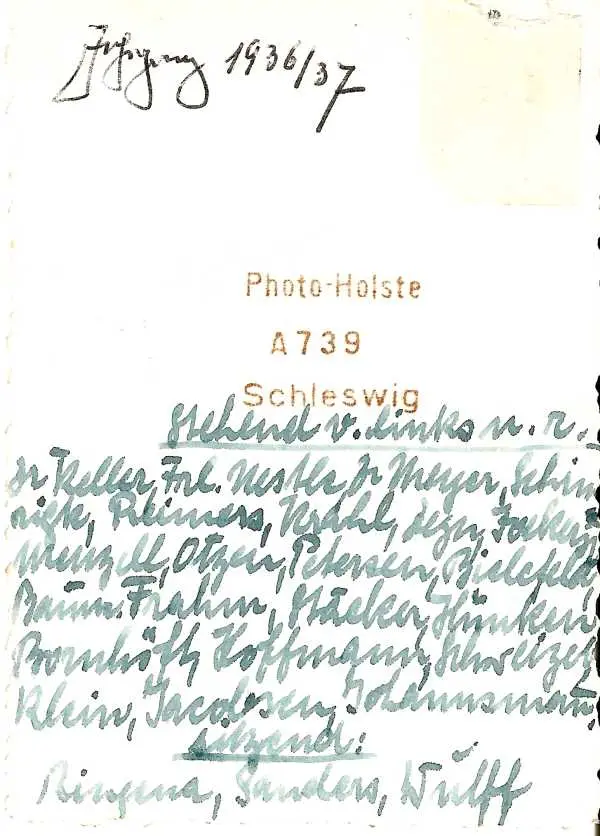 Jahrgang 1936/37
Photo-Holste
A739
Schleswig
Stehend v. links n. r.
Dr Keller, Frl. Nestle, Dr Meyer, Schim
rigk, Reimers, Krahl,
Menzell, Otzen, Petersen, Bielefeld,
Baum. Frahm, Stäcker, Hünken
Bornhöft, Hoffmann, Schweizer,
Klein, Jacobsen, Johannsmann.
sitzend:
Bingena, Sanders, Wulff